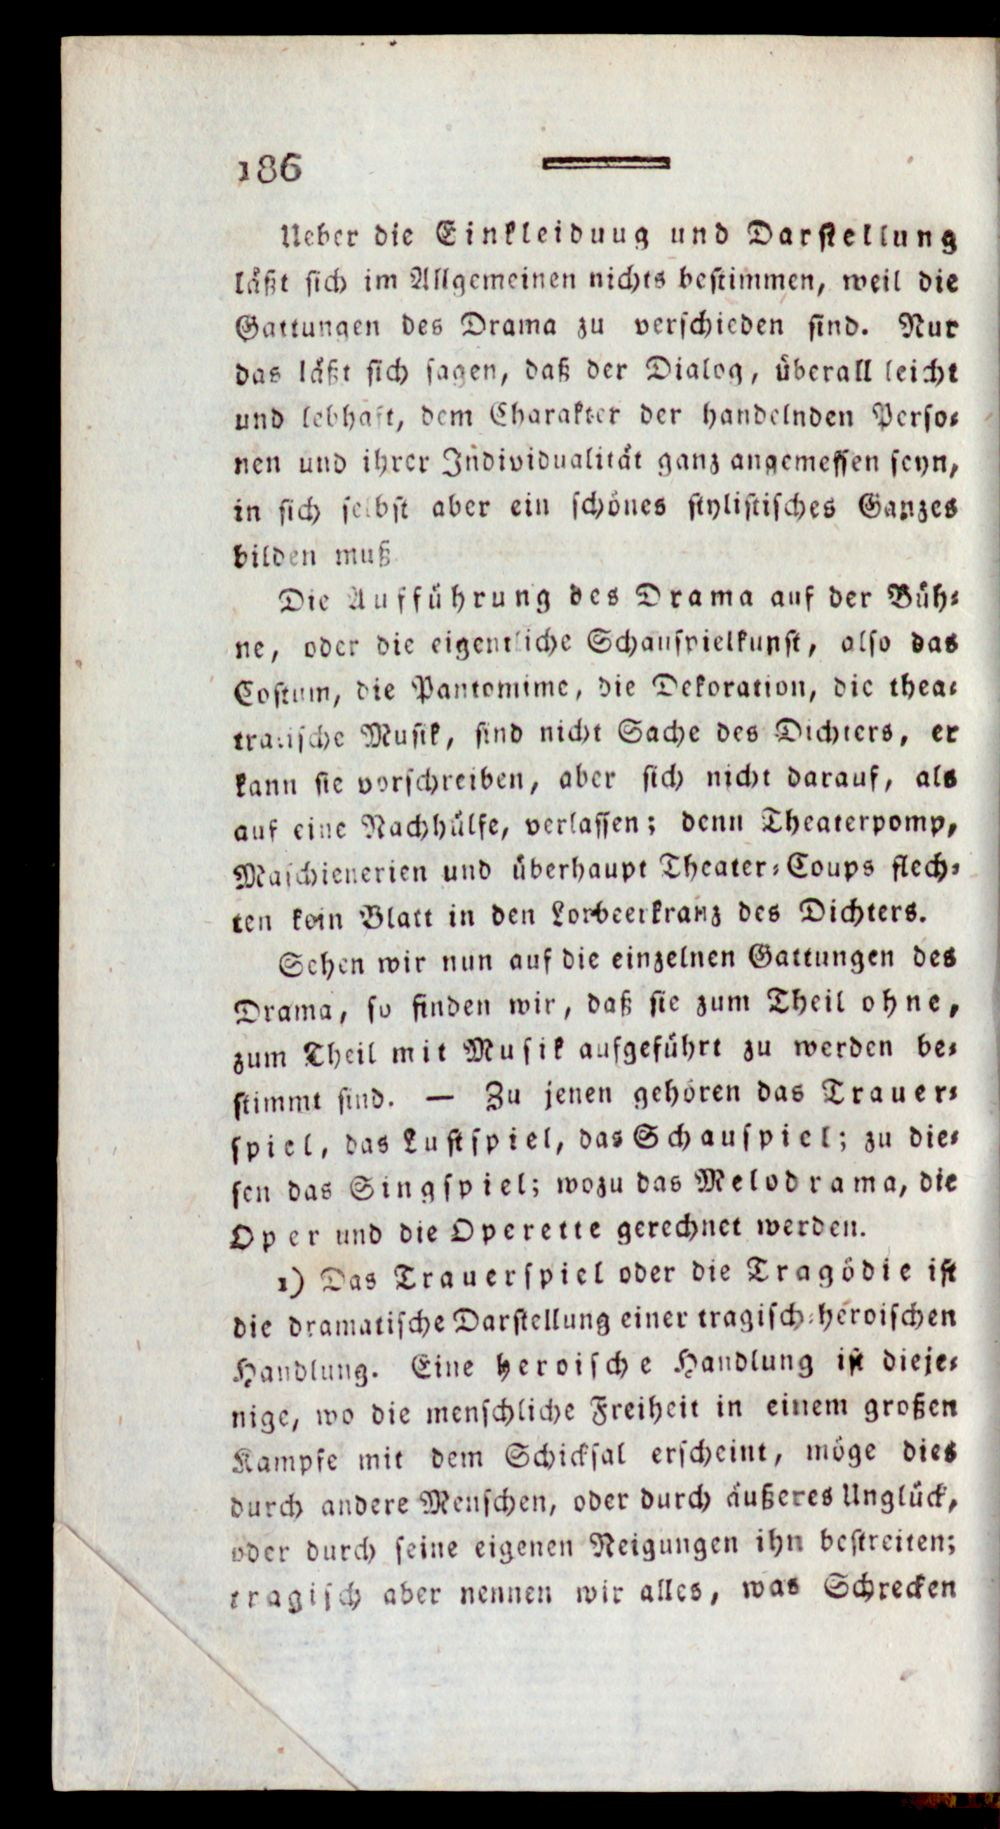 186
Ueber die Einkleiduug und Darstellung
läßt sich im Allgemeinen nichts bestimmen, weil die
Gattungen des Drama zu verschieden sind. Nur
das läßt sich sagen, daß der Dialog, überall leicht
und lebhaft, dem Charakter der handelnden Perso-
nen und ihrer Individualität ganz angemessen seyn,
in sich selbst aber ein schönes stylistisches Ganzes
bilden muß
Die Aufführung des Drama auf der Büh-
ne, oder die eigentliche Schauspielkunst, also das
Costum, die Pantomime, die Dekoration, die thea-
tralische Musik, sind nicht Sache des Dichters, er
kann sie vorschreiben, aber sich nicht darauf, als
auf eine Nachhülfe, verlassen; denn Theaterpomp,
Maschienerien und überhaupt Theater-Coups flech-
ten kein Blatt in den Lorbeerkranz des Dichters.
Sehen wir nun auf die einzelnen Gattungen des
Drama, so finden wir, daß sie zum Theil ohne,
zum Theil mit Musik aufgeführt zu werden be-
stimmt sind. — Zu jenen gehören das Trauer-
spiel, das Lustspiel, das Schauspiel; zu die-
sen das Singspiel; wozu das Melodrama, die
Oper und die Operette gerechnet werden.
1) Das Trauerspiel oder die Tragödie ist
die dramatische Darstellung einer tragisch-heroischen
Handlung. Eine heroische Handlung ist dieje-
nige, wo die menschliche Freiheit in einem großen
Kampfe mit dem Schicksal erscheint, möge dies
durch andere Menschen, oder durch äußeres Unglück,
oder durch seine eigenen Neigungen ihn bestreiten;
tragisch aber nennen wir alles, was Schrecken